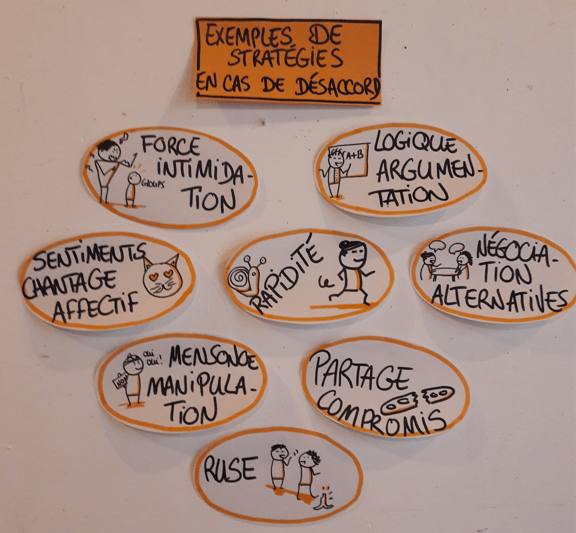 EXEMPLES DE
STRATÉGIES
EN CAS DE DÉSACCORD
FORCE
INTIMIDA-
TION
GLOUPS
LOGIQUE
ARGUMEN-
TATION
A+B
SENTIMENTS
CHANTAGE
AFFECTIF
RAPIDITÉ
NÉGOCIA-
TION
ALTERNATIVES
MENSONGE
MANIPULA-
TION
oui
oui!
PARTAGE
COMPROMIS
RUSE